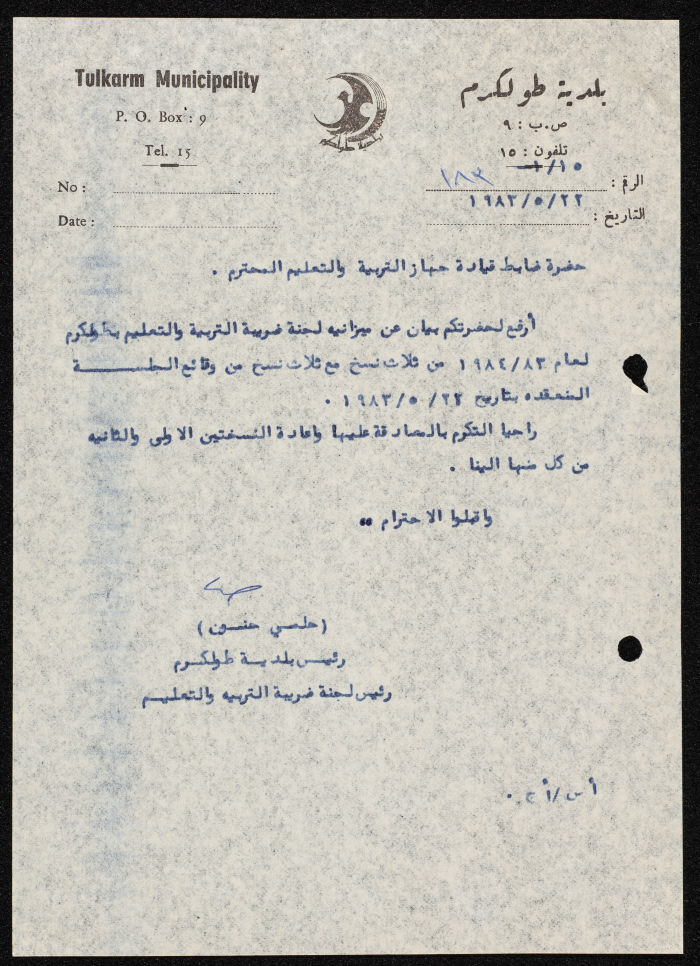 Tulkarm Municipality
P. O. Box : 9
Tel. 15
No :
Date :
بلدية طولكرم
بلدية طولكرم
ص.ب : ٩
تلفون : ١٥
الرقم : ١/١٥ ١٨٣
التاريخ : ١٩٨٣/٥/٢٢
حضرة ضابط قيادة جهاز التربية والتعليم المحترم .
أرفع لحضرتكم بيان عن ميزانيه لجنة ضريبة التربية والتعليم بطولكرم
لعام ١٩٨٤/٨٣ من ثلاث نسخ مع ثلاث نسخ من وقائع الجلســـــة
المنعقده بتاريخ ٢٢/ ٥/ ١٩٨٣ .
راجيا التكرم بالمصادقة عليها واعادة النسختين الاولى والثانيه
من كل منها الينا .
واقبلوا الاحترام ،،
(حلمي حنــون)
رئيــس بلديــة طولكــرم
رئيس لجنة ضريبة التربيه والتعليــم
أ س/أ ح .